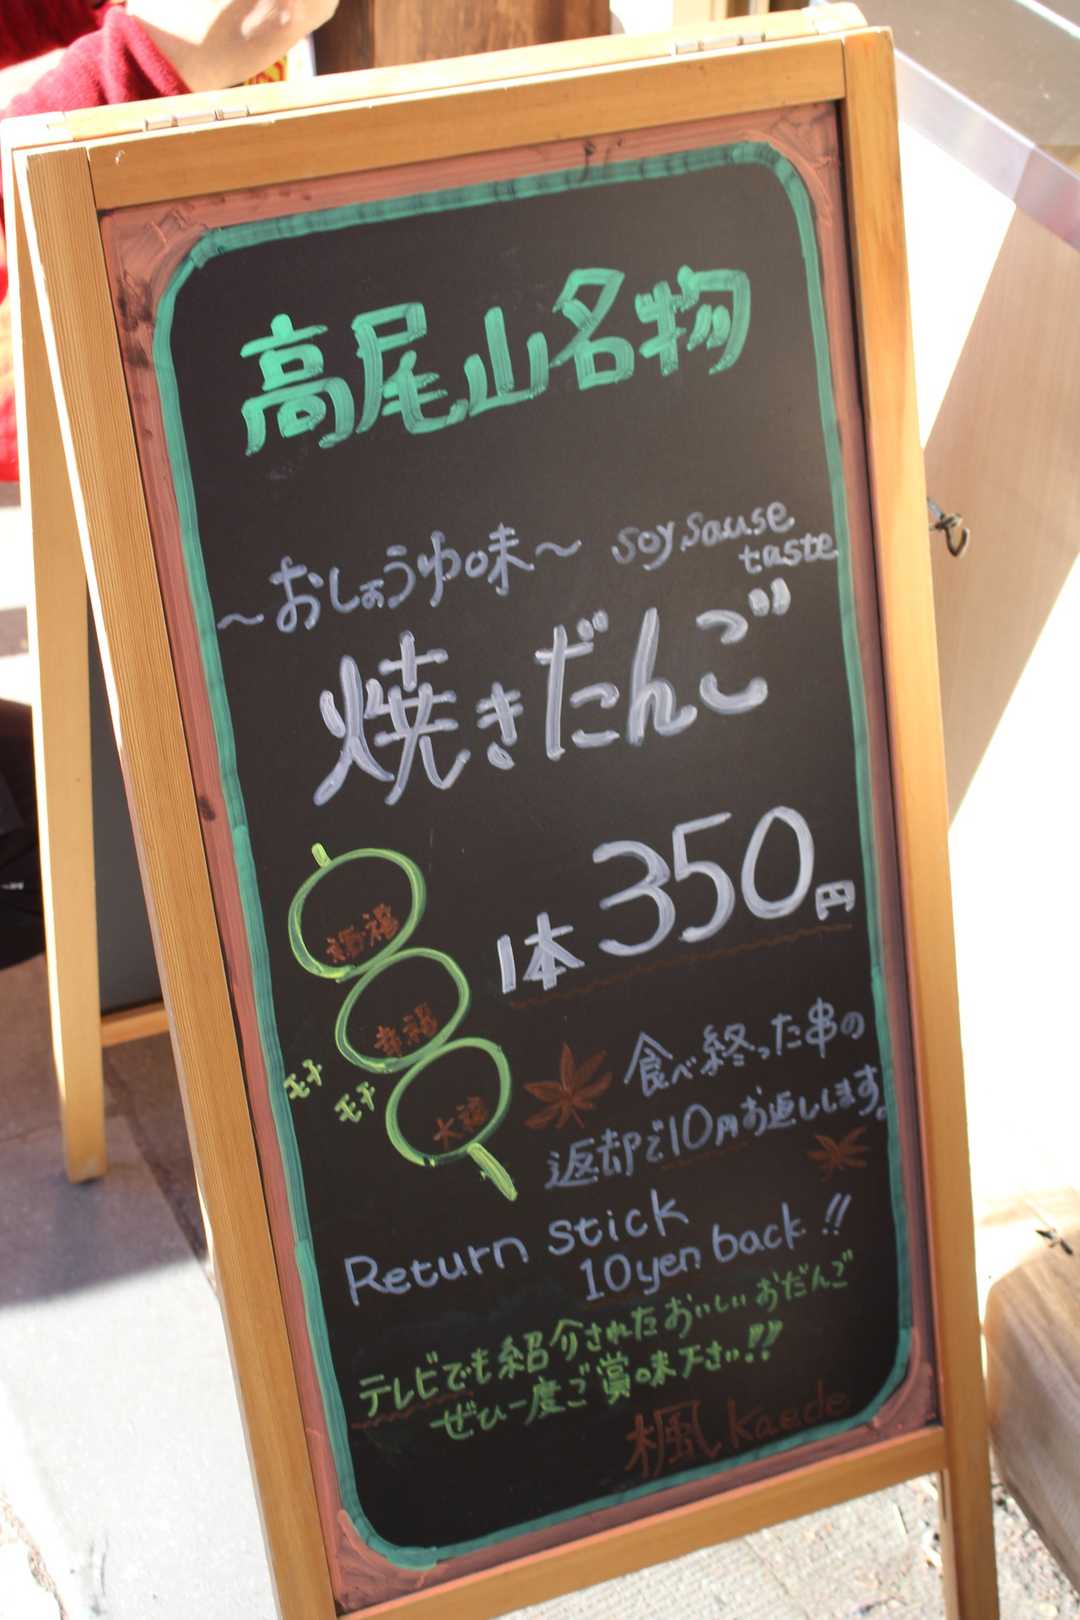 高尾山名物
～おしょうゆ味～ soy sause
taste
焼きだんご
1本350円
幸福
大福
モチ
モチ
食べ終った串の
返却で10円お返しします。
Return stick
10yen back!!
テレビでも紹介されたおいしいおだんご
ぜひ一度ご賞味下さい!!
楓 Kaede